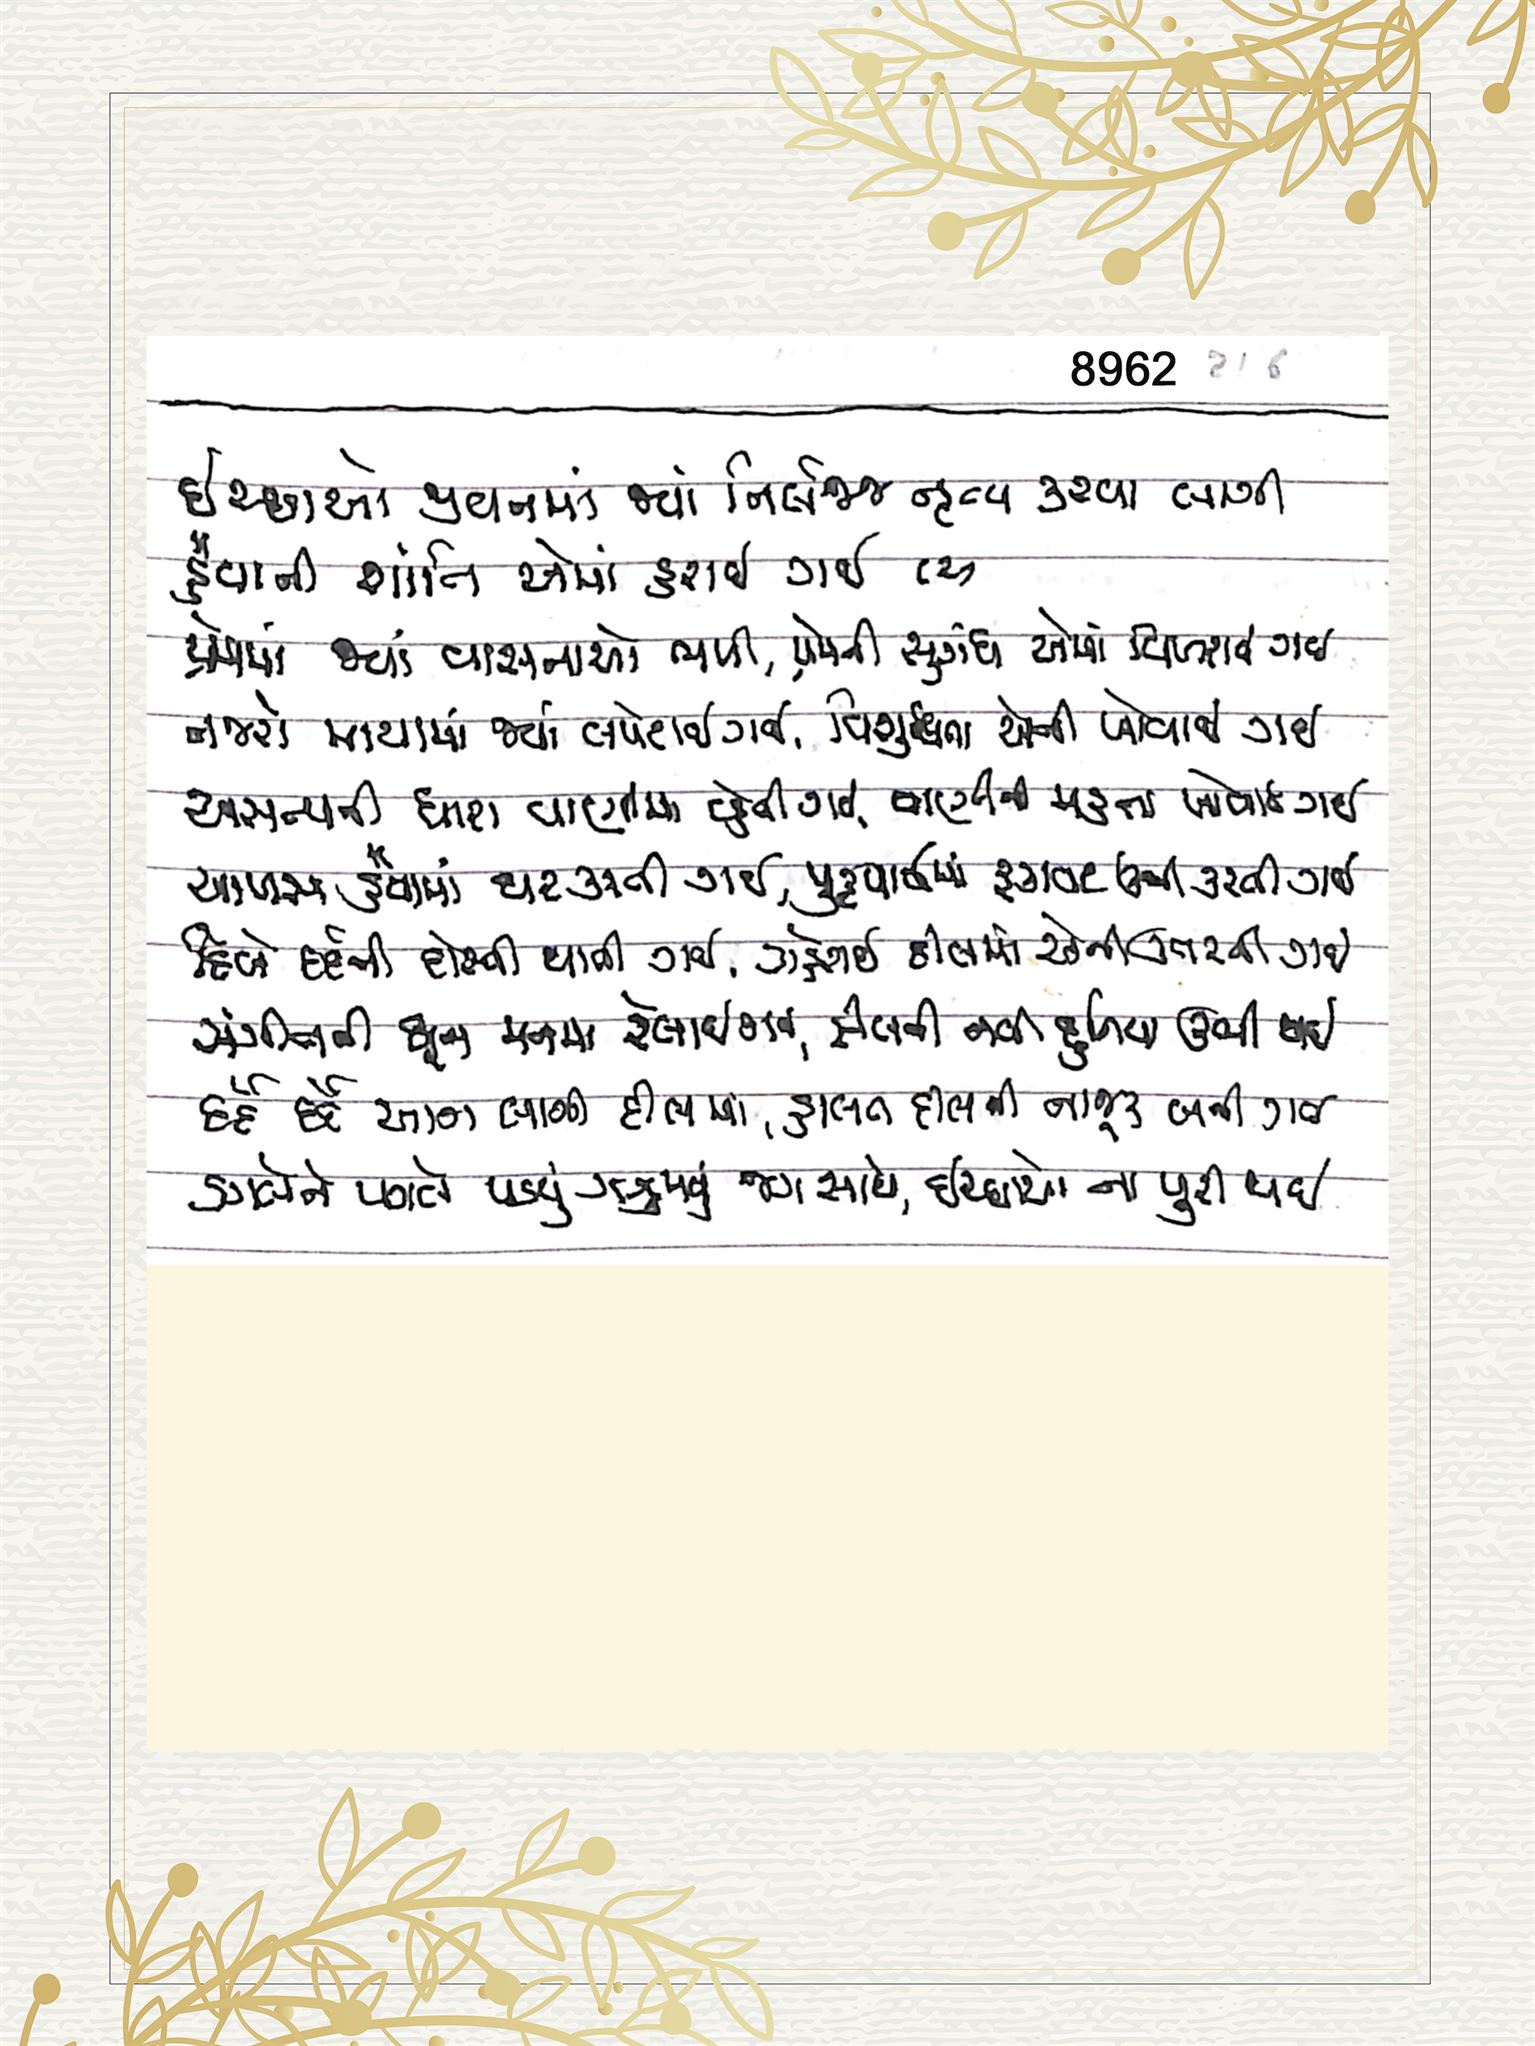 8962 216
ઇચ્છાઓ જીવનમાં જ્યાં નિર્લજ્જ નૃત્ય કરવા લાગી
હૈંયાની શાંતિ એમાં હરાઈ ગઈ
પ્રેમમાં જ્યાં વાસનાઓ ભળી, પ્રેમની સુગંધ એમાં વિખરાઈ ગઈ
નજરો માયામાં જ્યાં લપેટાઈ ગઈ, વિશુદ્ધતા એની ખોવાઈ ગઈ
અસત્યની ધારા વાણીમાં વહેતી ગઈ, વાણીની મક્તા ખોવાઈ ગઈ
આળસ હૈંયામાં ઘર કરતી ગઈ, પુરુષાર્થમાં રૂકાવટ ઊભી કરતી ગઈ
દિલે દર્દની દોસ્તી થાતી ગઈ, ગહેરાઈ દીલમાં એની ઉતરતી ગઈ
સંગીતની ધૂન મનમાં રેલાઈ ગઈ, દીલની નવી દુનિયા ઊભી થઈ
દર્દે દર્દે આગ લાગી દીલમાં, હાલત દીલની નાજૂક બની ગઈ
ડગલેને પગલે પડયું ઝઝૂમવું જગ સાથે, ઇચ્છાઓ ના પુરી થઈ